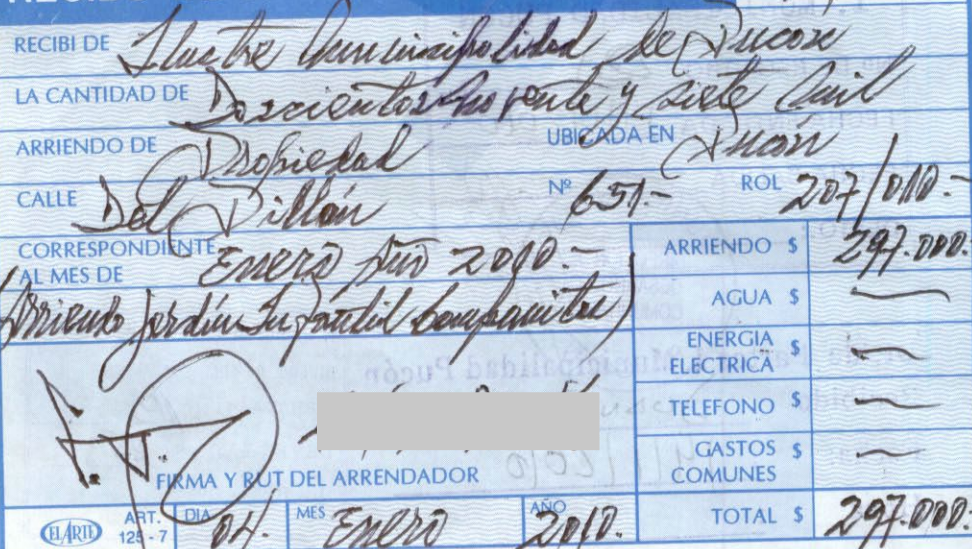 RECIBI DE Ilustre Municipalidad de Pucón
LA CANTIDAD DE Doscientos Noventa y siete mil
ARRIENDO DE Propiedad UBICADA EN Pucón
CALLE Del Pillán Nº 651.- ROL 207/010.-
CORRESPONDIENTE AL MES DE Enero Año 2010.-
Arriendo Jardín Infantil Campanitas)
ARRIENDO $ 297.000.
AGUA $ —
ENERGIA ELECTRICA $ —
TELEFONO $ —
GASTOS COMUNES $ —
FIRMA Y RUT DEL ARRENDADOR
EL ARTE ART. 125 - 7 DIA 04. MES Enero AÑO 2010. TOTAL $ 297.000.